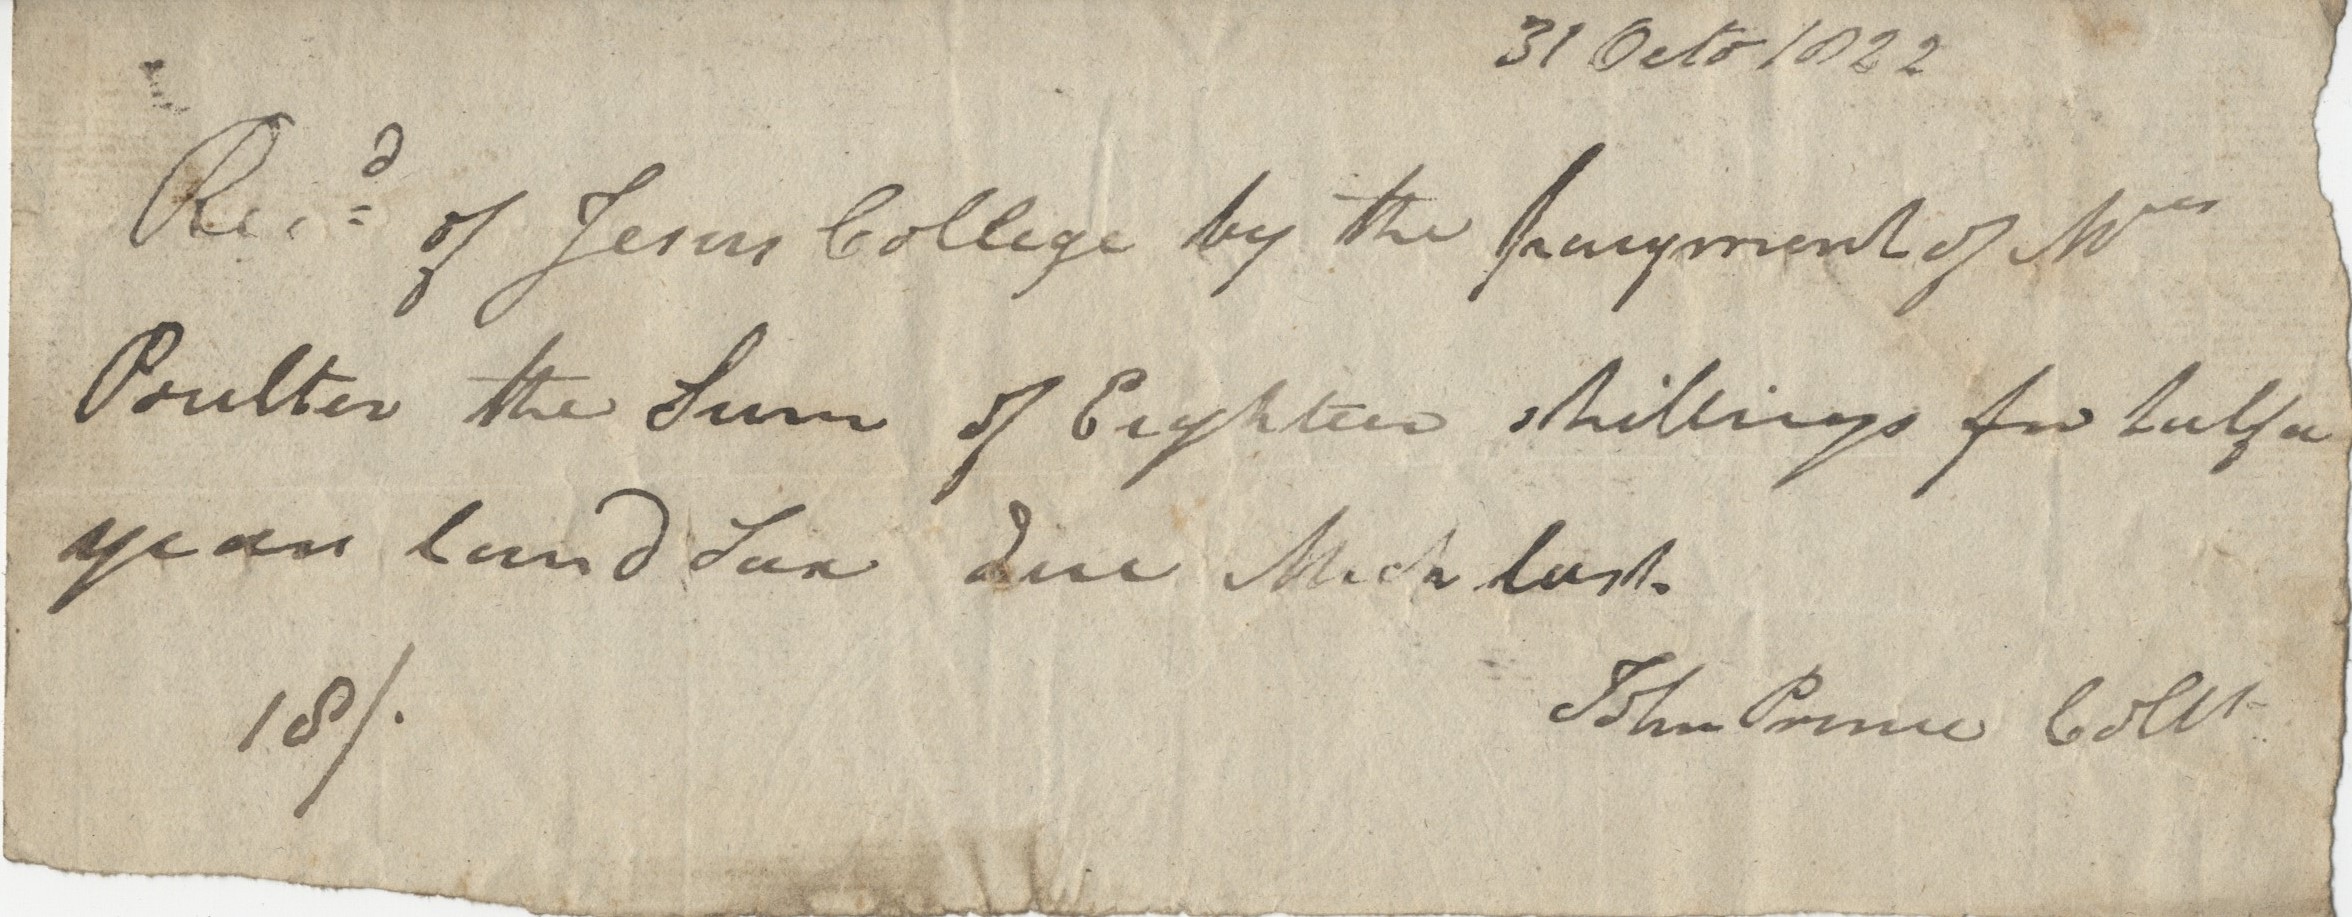 31 Octo 1822
Rec.d of Jesus College by the payment of Mrs
Poulter the Sum of Eighteen shillings for half a
year land Tax due Mich last.
18/.
John Prince Collr